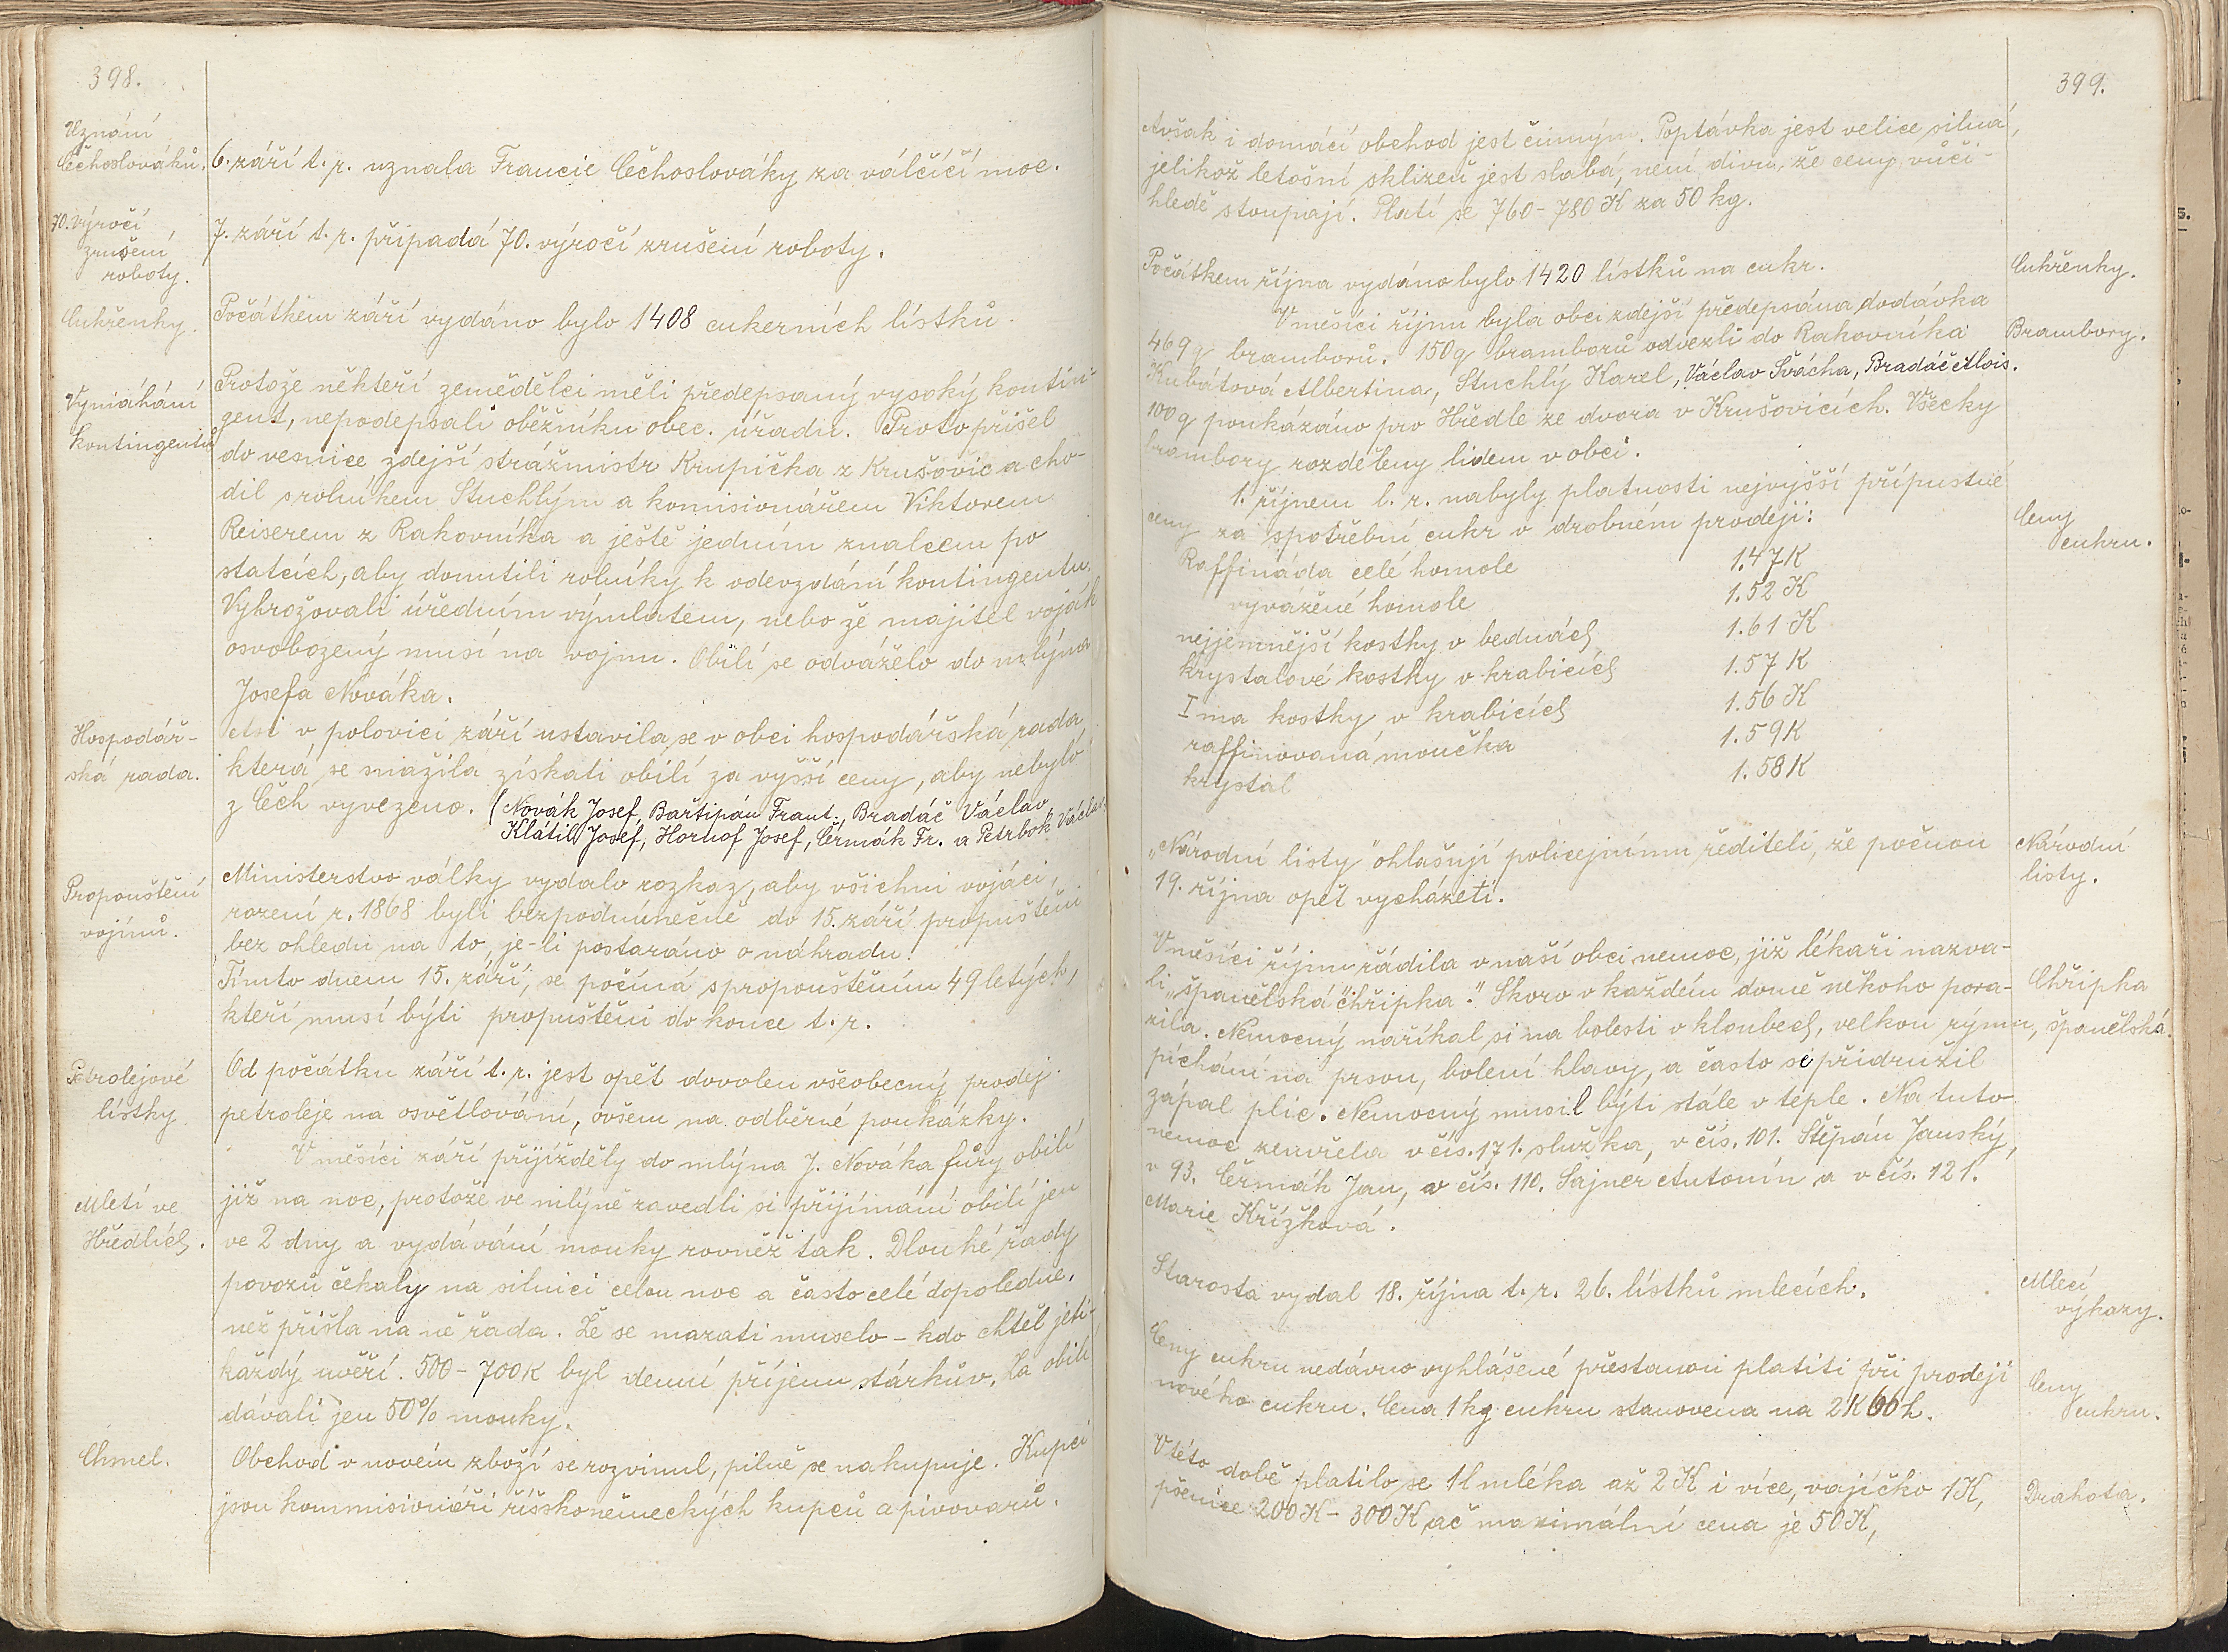 398.
Uznání
Čechoslováků.
6. září t. r. uznala Francie Čechoslováky za válčící moc.
70. výročí
zrušení
roboty.
7. září t. r. připadá 70. výročí zrušení roboty.
Cukřenky.
Počátkem září vydáno bylo 1408 cukerních lístků.
Vymáhání
kontingentu
Protože někteří zemědělci měli předepsaný vysoký kontin-
gent, nepodepsali oběžníku obec. úřadu. Proto přišel
do vesnice zdejší strážmistr Krupička z Krušovic a cho-
dil s rolníkem Stuchlým a komisionářem Viktorem
Reiserem z Rakovníka a ještě jedním znalcem po
statcích, aby donutili rolníky k odevzdání kontingentu.
Vyhrožovali úředním výmlatem, nebo že majitel voják
osvobozený musí na vojnu. Obilí se odváželo do mlýna
Josefa Nováka.
Hospodář-
ská rada.
Asi v polovici září ustavila se v obci hospodářská rada
která se snažila získati obilí za vyšší ceny, aby nebylo
z Čech vyvezeno. (Novák Josef, Bařtipán Frant., Bradáč Václav
Klátil Josef, Hornof Josef, Čermák Fr. a Petrbok Václav.
Propouštění
vojínů.
Ministerstvo války vydalo rozkaz, aby všichni vojáci,
rození r. 1868 byli bezpodmínečně do 15. září propuštěni
bez ohledu na to, je-li postaráno o náhradu.
Tímto dnem 15. září, se počíná s propouštěním 49 letých,
kteří musí býti propuštěni do konce t. r.
Petrolejové
lístky
Od počátku září t. r. jest opět dovolen všeobecný prodej
petroleje na osvětlování, ovšem na odběrné poukázky.
Mletí ve
Hředlích.
V měsíci září přijížděly do mlýna J. Nováka fůry obilí
již na noc, protože ve mlýně zavedli si přijímání obilí jen
ve 2 dny a vydávání mouky rovněž tak. Dlouhé řady
povozů čekaly na silnici celou noc a často celé dopoledne.
než přišla na ně řada. Že se mazati muselo - kdo chtěl jeti-
každý uvěří. 500 - 700K byl denní příjem stárkův. Za obilí
dávali jen 50% mouky.
Chmel.
Obchod v novém zboží se rozvinul, pilně se nakupuje. Kupci
jsou kommisionéři říšskoněmeckých kupců a pivovarů.
399.
Avšak i domácí obchod jest činným. Poptávka jest velice silná,
jelikož letošní sklizeň jest slabá, není divu, že ceny vůči-
hledě stoupají. Platí se 760 - 780 K za 50 kg.
Cukřenky.
Počátkem října vydáno bylo 1420 lístků na cukr.
Brambory.
V měsíci říjnu byla obci zdejší předepsána dodávka
469 q bramborů. 150 q bramborů odvezli do Rakovníka
Kubátová Albertina, Stuchlý Karel, Václav Švácha, Bradáč Alois.
100 q poukázáno pro Hředle ze dvora v Krušovicích. Všecky
brambory rozděleny lidem v obci.
Ceny
cukru.
1. říjnem t. r. nabyly platnosti nejvyšší přípustné
ceny za spotřební cukr v drobném prodeji:
Raffináda celé homole 1.47 K
vyvážené homole 1.52 K
nejjemnější kostky v bednách 1.61 K
krystalové kostky v krabicích 1.57 K
I ma kostky v krabicích 1.56 K
raffinovaná moučka 1.59 K
krystal 1.58 K
Národní
listy.
„Národní listy" ohlašují policejnímu řediteli, že počnou
19. října opět vycházeti.
Chřipka
španělská.
V měsíci říjnu řádila v naší obci nemoc, již lékaři nazva-
li „španělská chřipka." Skoro v každém domě někoho pora-
zila. Nemocný naříkal si na bolesti v kloubech, velkou rýmu,
píchání na prsou, bolení hlavy, a často se přidružil
zápal plic. Nemocný musil býti stále v teple. Na tuto
nemoc zemřela v čís. 171. služka, v čís. 101. Štěpán Janský,
v 93. Čermák Jan, v čís. 110. Šajner Antonín a v čís. 121.
Marie Křížková.
Mlecí
výkazy.
Starosta vydal 18. října t. r. 26. lístků mlecích.
Ceny
cukru.
Ceny cukru nedávno vyhlášené přestanou platiti při prodeji
nového cukru. Cena 1 kg cukru stanovena na 2 K 60 h.
Drahota.
V této době platilo se 1 l mléka až 2 K i více, vajíčko 1 K,
pšenice 200 K - 300 K ač maximální cena je 50 K,